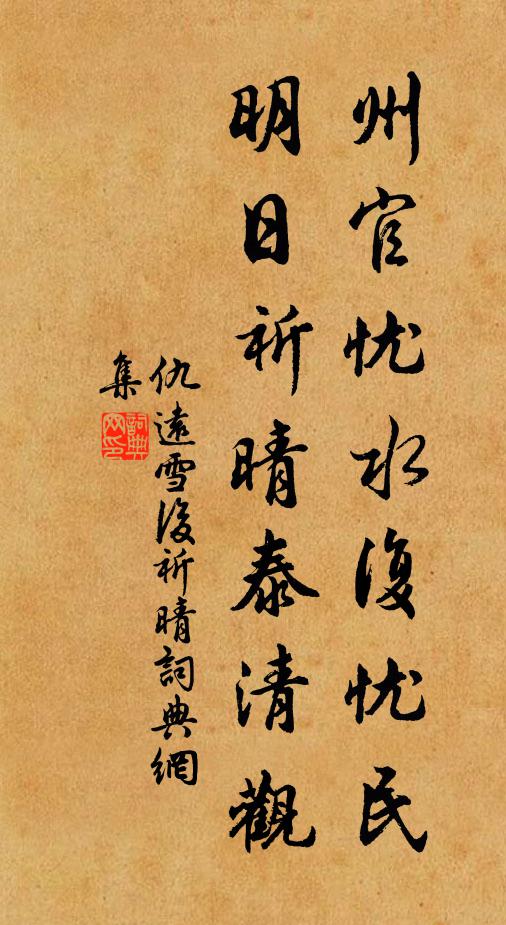 州官忧水復忧民
明日祈晴泰清觀
仇遠雪後祈晴詞典網
集
詞典网印